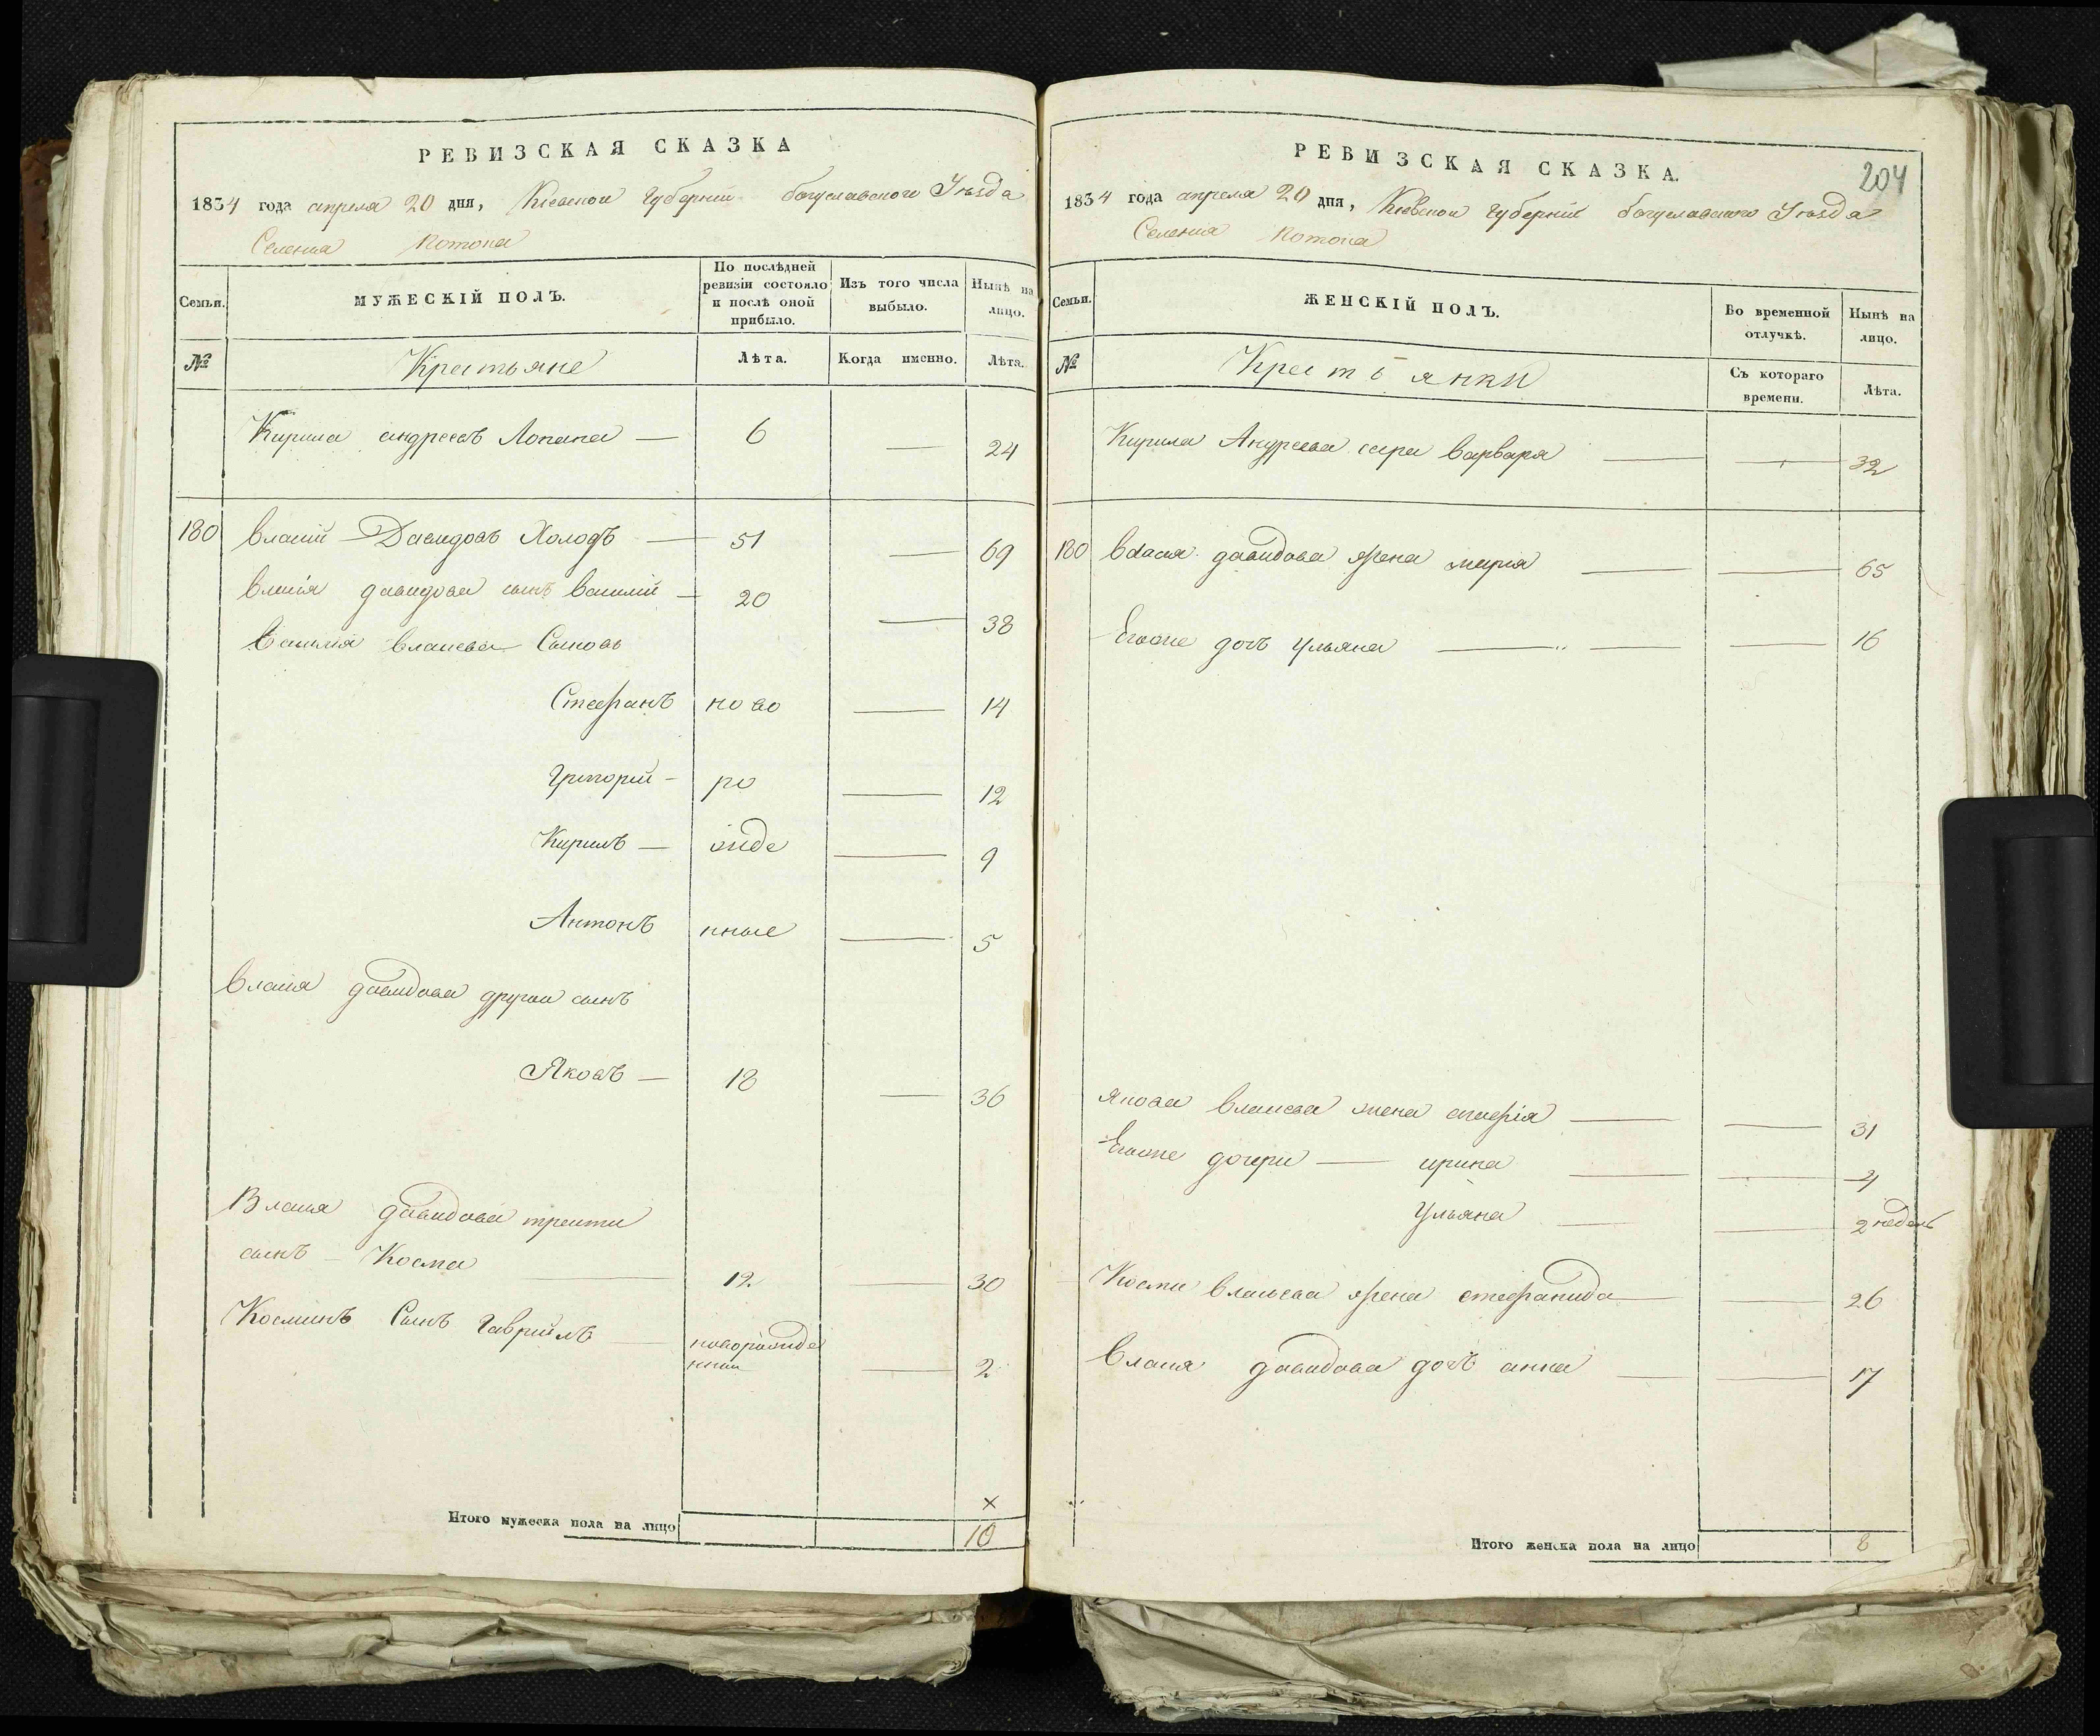 РЕВИЗСКАЯ СКАЗКА
1834 года апреля 20 дня, Киевской Губерніи богуславского Уезда
Селения Потока
Семьи.
МУЖЕСКІЙ ПОЛЪ.
По послѣдней ревизіи состояло и послѣ оной прибыло.
Изъ того числа выбыло.
Нынѣ на лицо.
№
Крестьяне
Лѣта.
Когда именно.
Лѣта.
Кирила андреевъ Лопата — 6 — 24
180 власий Давидовъ Холодъ — 51 — 69
власія давидова сынъ василий — 20 — 38
василия власиева Сыновья
Стефанъ ново — 14
Григорий — ро — 12
Кирилъ — жде — 9
Антонъ нные — 5
власия давидова другой сынъ
Яковъ — 18 — 36
Власия давидова трети
сынъ — Косма — 12 — 30
Косминъ Сынъ Гаврийлъ — новорожде
нний — 2
×
Итого мужеска пола на лицо 10
204
РЕВИЗСКАЯ СКАЗКА.
1834 года апреля 20 дня, Киевской губерніи богуславского Уезда
Селения Потока
Семьи.
ЖЕНСКІЙ ПОЛЪ.
Во временной отлучкѣ.
Нынѣ на лицо.
№
Крестьянки
Съ котораго времени.
Лѣта.
Кирила Андреева сестра варвара — — 32
180 власия давидова жена мария — — 65
Егоже дочь Ульяна — — 16
якова власиева жена агафія — — 31
Егоже дочери — ирина — — 4
Ульяна — — 2 недель
Косми власиева жена стефанида — — 26
власия давидова дочь анна — — 17
Итого женска пола на лицо 8